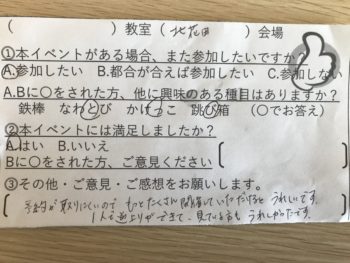 (　　　　　　) 教室 ( 北花田　　　) 会場
①本イベントがある場合、また参加したいですか？
A.参加したい　B.都合が合えば参加したい　C.参加しない
A.Bに○をされた方、他に興味のある種目はありますか？
鉄棒　なわとび　かけっこ　跳び箱　(○でお答え)
②本イベントには満足しましたか？
A.はい　B.いいえ
Bに○をされた方、ご意見ください
③その他・ご意見・ご感想をお願いします。
予約が取りにくいので もっとたくさん 開催していただけると うれしいです。
1人で逆上りができて、見ている方も うれしかったです。